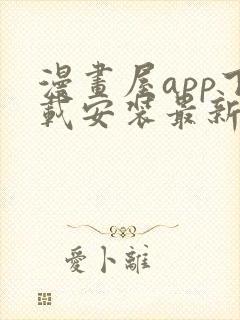 漫畫屋app下
載安裝最新
愛卜離